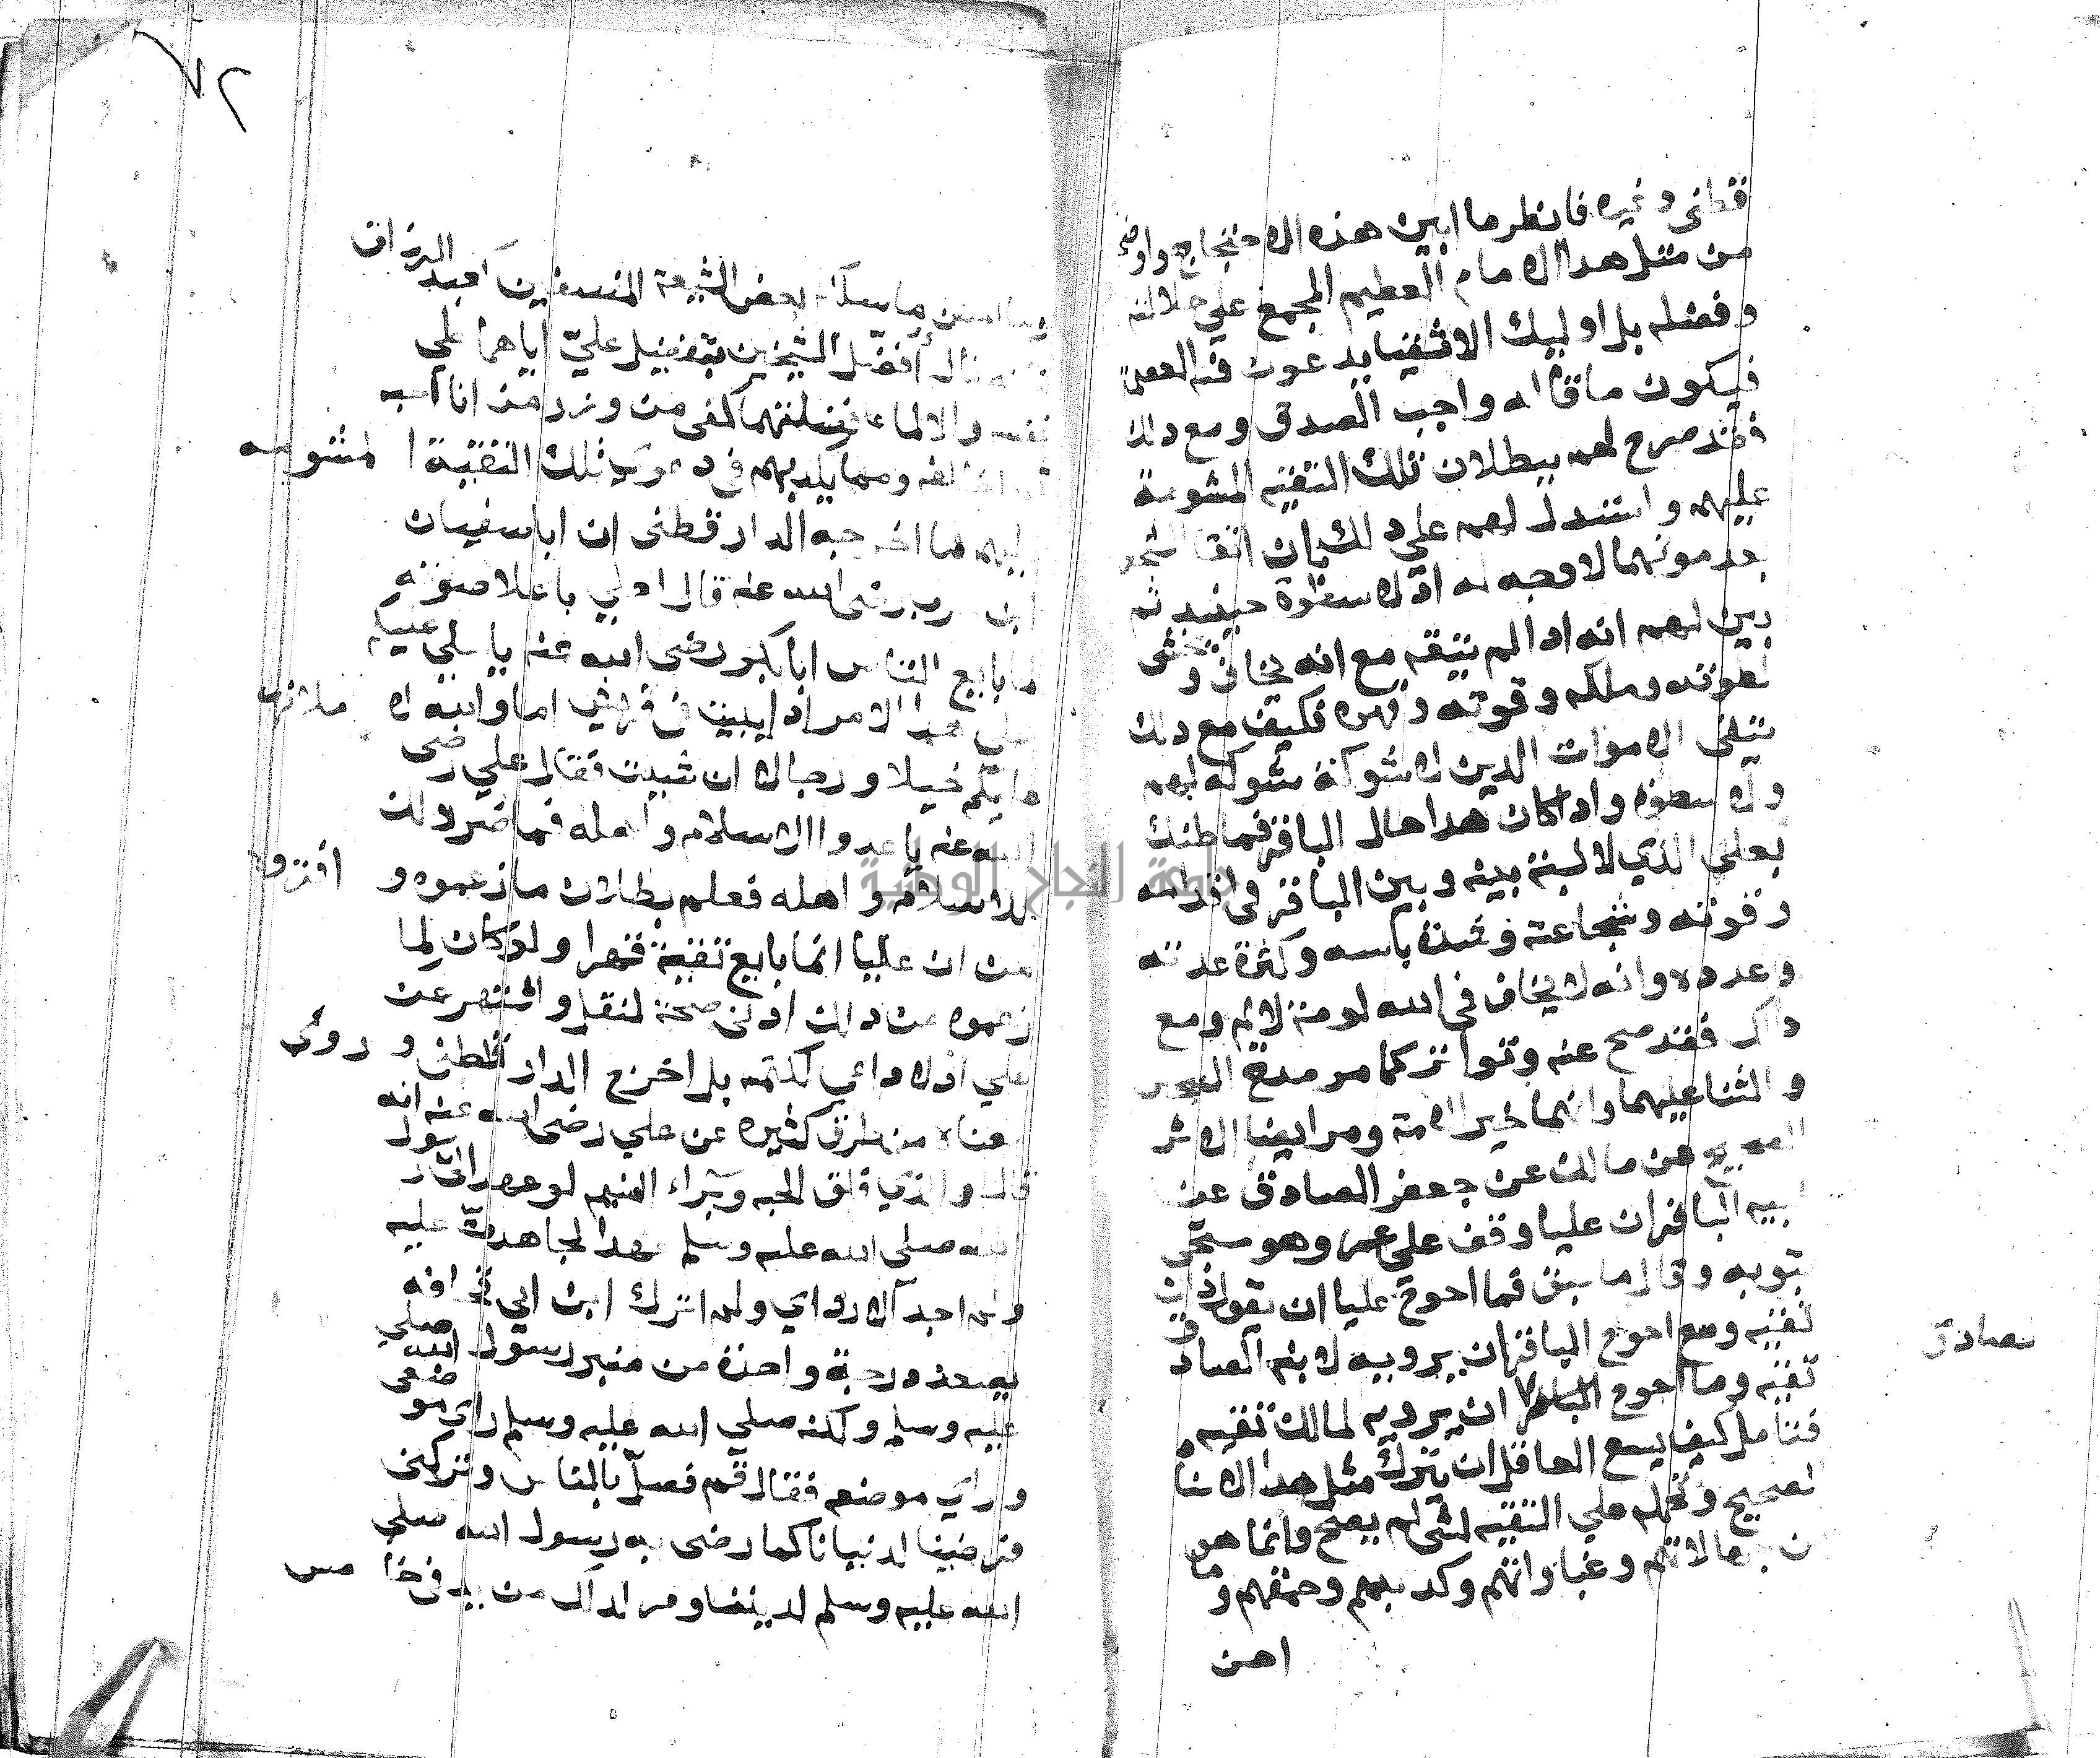 قطنى وغيره فانظر ما ابين هذه الاحتجاج واوضح
من مثل هذا الامام العظيم المجمع علي جلالته
وفضله بل اوليك الاشقيا يدعون فيه العصمة
فيكون ما قاله واجب الصدق ومع ذلك
فقد صرح لهم ببطلان تلك التقيه المشومة
عليهم واستدل لهم علي ذلك بان اتقا الشيخين
بعد موتهما لا وجه له اذ لا سطوة حينيد ثم
بين لهم انه اذا لم يتقه مع انه يخاف و يخشى
لصولته وملكه وقوته وقهره فكيف مع ذلك
يتقى الاموات الدين لا شوكة لهم
ولا سطوه واذا كان هذا حال الباقر فما ظنك
بعلى الذي لا نسبة بينه وبين الباقر في اقدامه
وقوته وشجاعته وشدة باسه وكثرة عدته
وعدده وانه لا يخاف فى الله لومة لايم ومع
ذلك فقد صح عنه وتواتر كما مر مدح الشيخين
والثنا عليهما وانهما خير الامة ومر ايضا الاثر
الصحيح عن مالك عن جعفر الصادق عن
ابيه الباقر ان عليا وقف علي عمر وهو مسجى
بثوبه وقال ما سبق فما احوج عليا ان يقول ذلك
تقيه وما احوج الباقر ان يرويه لابنه الصادق
تقيه وما احوج ان يرويه لمالك تقيه
الصادق
فتامل كيف يسع العاقل ان يترك مثل هذا الاسناد
الصحيح ويحمله علي التقيه لشى لم يصح وانما هو
من جهالاتهم وغباواتهم وكدبهم وحمقهم وما
احسن
٧٢
وما احسن ما سلكه بعض الشيعة المنصفين كعبد الرزاق
فانه قال أفضل الشيخين بتفضيل عليّ اياهما علي
نفسه والا لما فضلتهما كفى من وزر من انا احبه
ثم اخالفه ومما يكدبهم في دعوي تلك التقية المشومه
عليهم ما اخرجه الدارقطنى ان ابا سفيان
ابن حرب رضى الله عنه قال لعلي باعلا صوته
لما بايع الناس ابا بكر رضى الله عنه يا علي غلبكم
علي هذا الامر اذل بيت فى قريش اما والله لا ملانها
عليكم خيلا ورجالا ان شيت فقال علي رضى
الله عنه يا عدو الاسلام واهله فما ضر ذلك
الاسلام واهله فعلم بطلان ما زعموه و افتروه
من ان عليا انما بايع تقية قهرا ولو كان لما
زعموه من ذلك ادنى صحة لنقل واشتهر عن
علي اذ لا داعي لكتمه بل اخرج الدارقطنى و روي
معناه من طرق كثيره عن علي رضى الله عنه انه
قال والذي فلق الحبه وبراء النسم لو عهد الى رسول
الله صلى الله عليه وسلم عهدا لجاهدت عليه
ولو لم اجد الا رداي ولم اترك ابن ابي قحافه
يصعد درجة واحدة من منبر رسول الله صلي
عليه وسلم ولكنه صلي الله عليه وسلم راي موضعى
وراي موضعه فقال قم فصلّ بالناس وتركنى
فرضينا لدنيانا كما رضى به رسول الله صلي
الله عليه وسلم لديننا ومر لذلك مزيد فى خامس